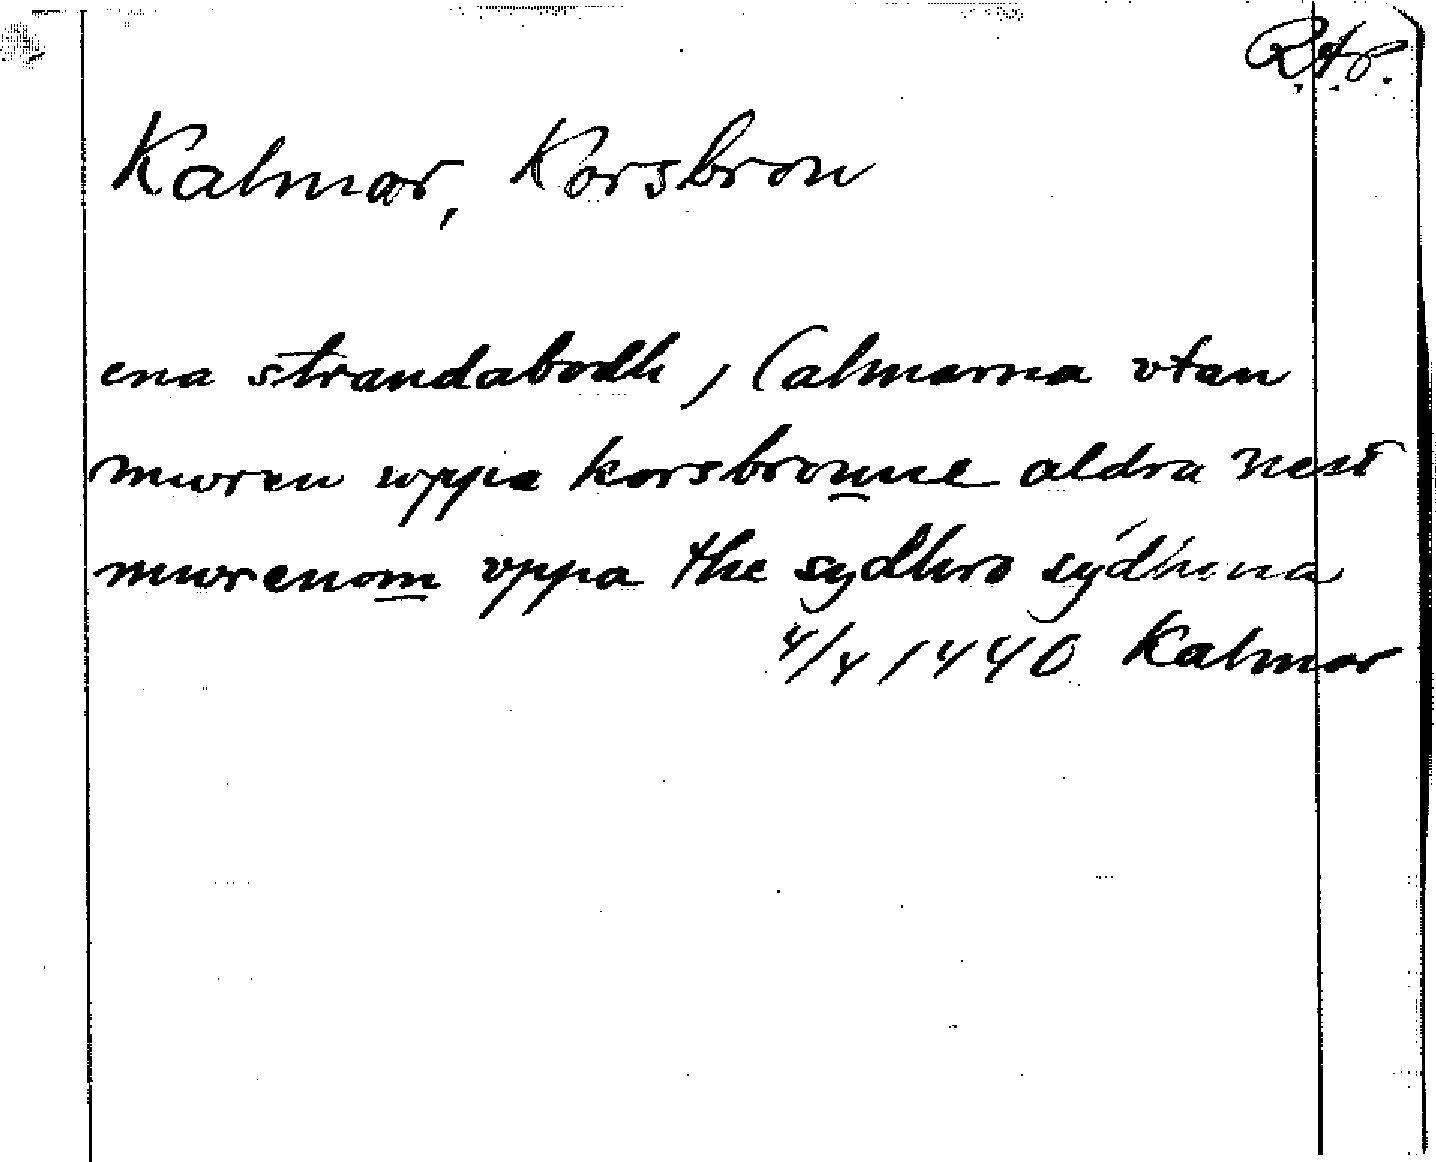 R.A.p.
Kalmar, Korsbron
ena strandabodh, j Calmarna vtan
mwren wppa korsbronne aldra nest
mwrenom vppa the sydhro sydhona
4/4 1440 Kalmar